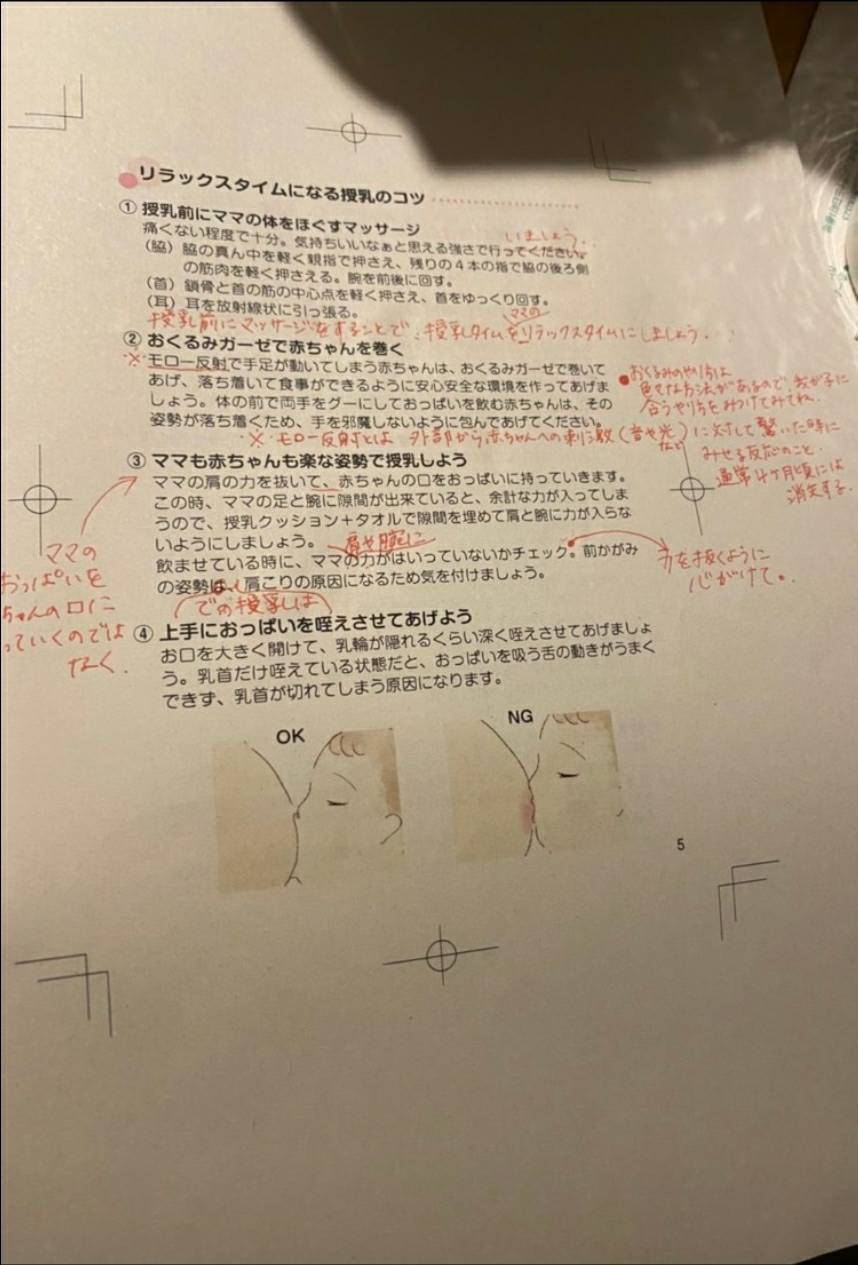 リラックスタイムになる授乳のコツ
① 授乳前にママの体をほぐすマッサージ
いましょう。
痛くない程度で十分。気持ちいいなぁと思える強さで行ってください。
（脇）脇の真ん中を軽く親指で押さえ、残りの４本の指で脇の後ろ側
の筋肉を軽く押さえる。腕を前後に回す。
（首）鎖骨と首の筋の中心点を軽く押さえ、首をゆっくり回す。
（耳）耳を放射線状に引っ張る。
ママの
授乳前にマッサージをすることで、授乳タイムをリラックスタイムにしましょう。
② おくるみガーゼで赤ちゃんを巻く
※モロー反射で手足が動いてしまう赤ちゃんは、おくるみガーゼで巻いて
あげ、落ち着いて食事ができるように安心安全な環境を作ってあげま
しょう。体の前で両手をグーにしておっぱいを飲む赤ちゃんは、その
姿勢が落ち着くため、手を邪魔しないように包んであげてください。
●おくるみのやり方は
色々な方法があるので、我が子に
合うやり方をみつけてみてね。
※モロー反射とは 外部から赤ちゃんへの刺激（音や光など）に対して驚いた時に
みせる反応のこと。
通常4ケ月頃には
消失する。
③ ママも赤ちゃんも楽な姿勢で授乳しよう
ママの肩の力を抜いて、赤ちゃんの口をおっぱいに持っていきます。
この時、ママの足と腕に隙間が出来ていると、余計な力が入ってしま
うので、授乳クッション＋タオルで隙間を埋めて肩と腕に力が入らな
いようにしましょう。
肩や腕に
飲ませている時に、ママの力がはいっていないかチェック。前かがみ
の姿勢は、肩こりの原因になるため気を付けましょう。
での授乳は
力を抜くように
心がけて。
ママの
おっぱいを
ちゃんの口に
っていくのでは
なく、
④ 上手におっぱいを咥えさせてあげよう
お口を大きく開けて、乳輪が隠れるくらい深く咥えさせてあげましょ
う。乳首だけ咥えている状態だと、おっぱいを吸う舌の動きがうまく
できず、乳首が切れてしまう原因になります。
OK
NG
5